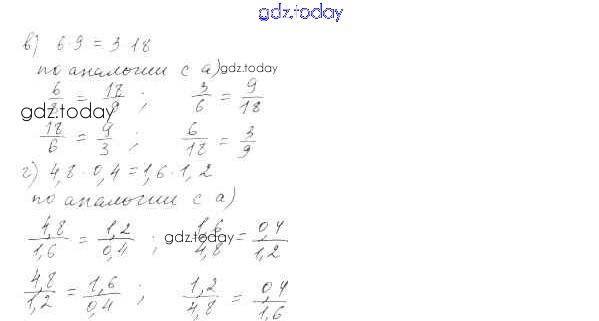 gdz.today
в) 6·9 = 3·18
по аналогии с а) gdz.today
6/ = 18/9 ; 3/6 = 9/18
gdz.today
18/6 = 9/3 ; 6/18 = 3/9
г) 4,8·0,4 = 1,6·1,2
по аналогии с а)
4,8/1,6 = 1,2/0,4 ; 1,6/4,8 = 0,4/1,2
gdz.today
4,8/1,2 = 1,6/0,4 ; 1,2/4,8 = 0,4/1,6